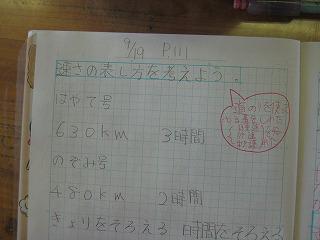 9/19 P111
速さの表し方を考えよう。
はやて号
630km 3時間
のぞみ号
480km 2時間
きょりをそろえる 時間をそろえる
道のり